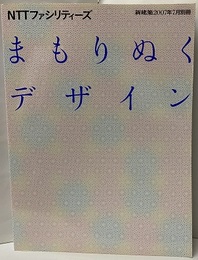 NTTファシリティーズ
新建築2007年7月別冊
まもりぬく
デザイン